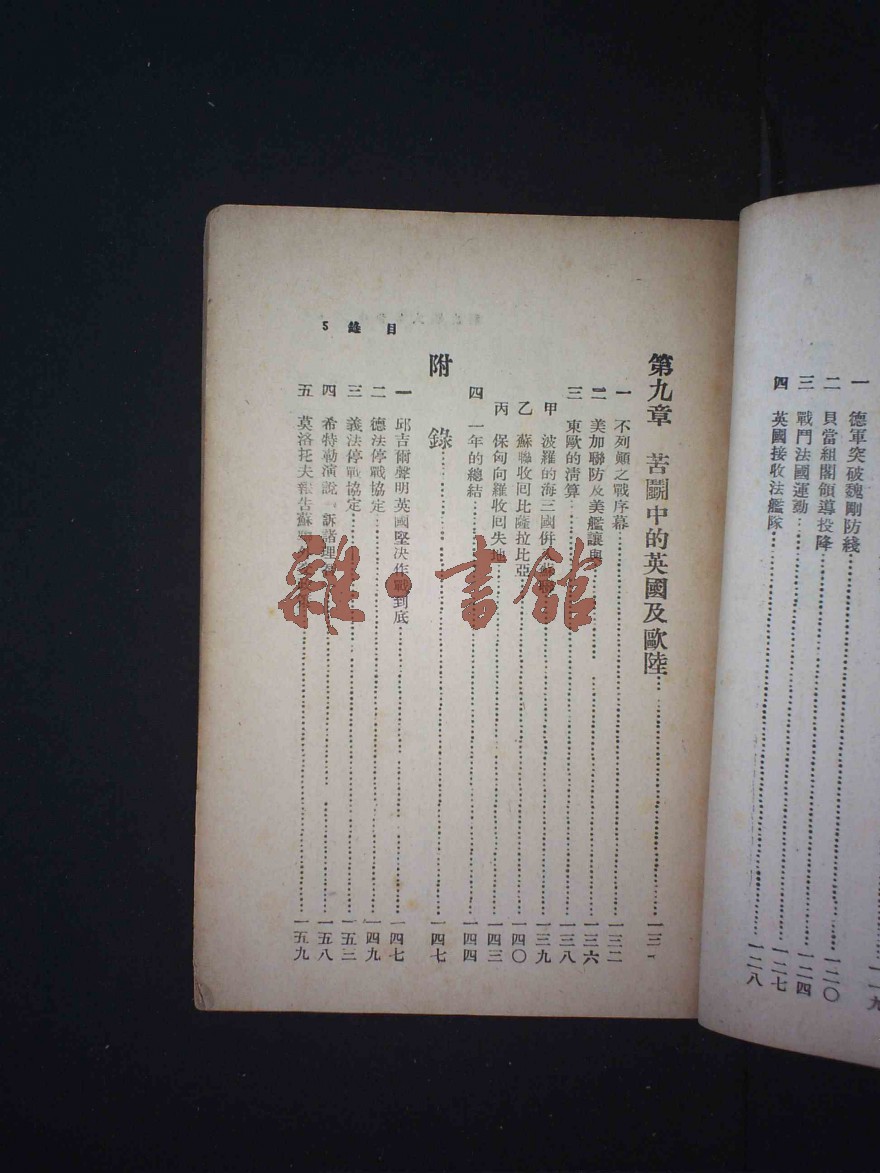 一 德軍突破魏剛防綫……一一九
二 貝當組閣領導投降……一二〇
三 戰鬥法國運動……一二四
四 英國接收法艦隊……一二七
一二八
目錄 5
第九章 苦鬭中的英國及歐陸……一三一
一 不列顛之戰序幕……一三二
二 美加聯防及美艦讓與……一三六
三 東歐的淸算……一三八
甲 波羅的海三國併……一三九
乙 蘇聯收回比薩拉比亞……一四〇
丙 保匈向羅收回失地……一四三
四 一年的總結……一四四
附 錄……一四七
一 邱吉爾聲明英國堅決作戰到底……一四七
二 德法停戰協定……一四九
三 義法停戰協定……一五三
四 希特勒演說「訴諸理……一五八
五 莫洛托夫報告蘇……一五九
雜·書館